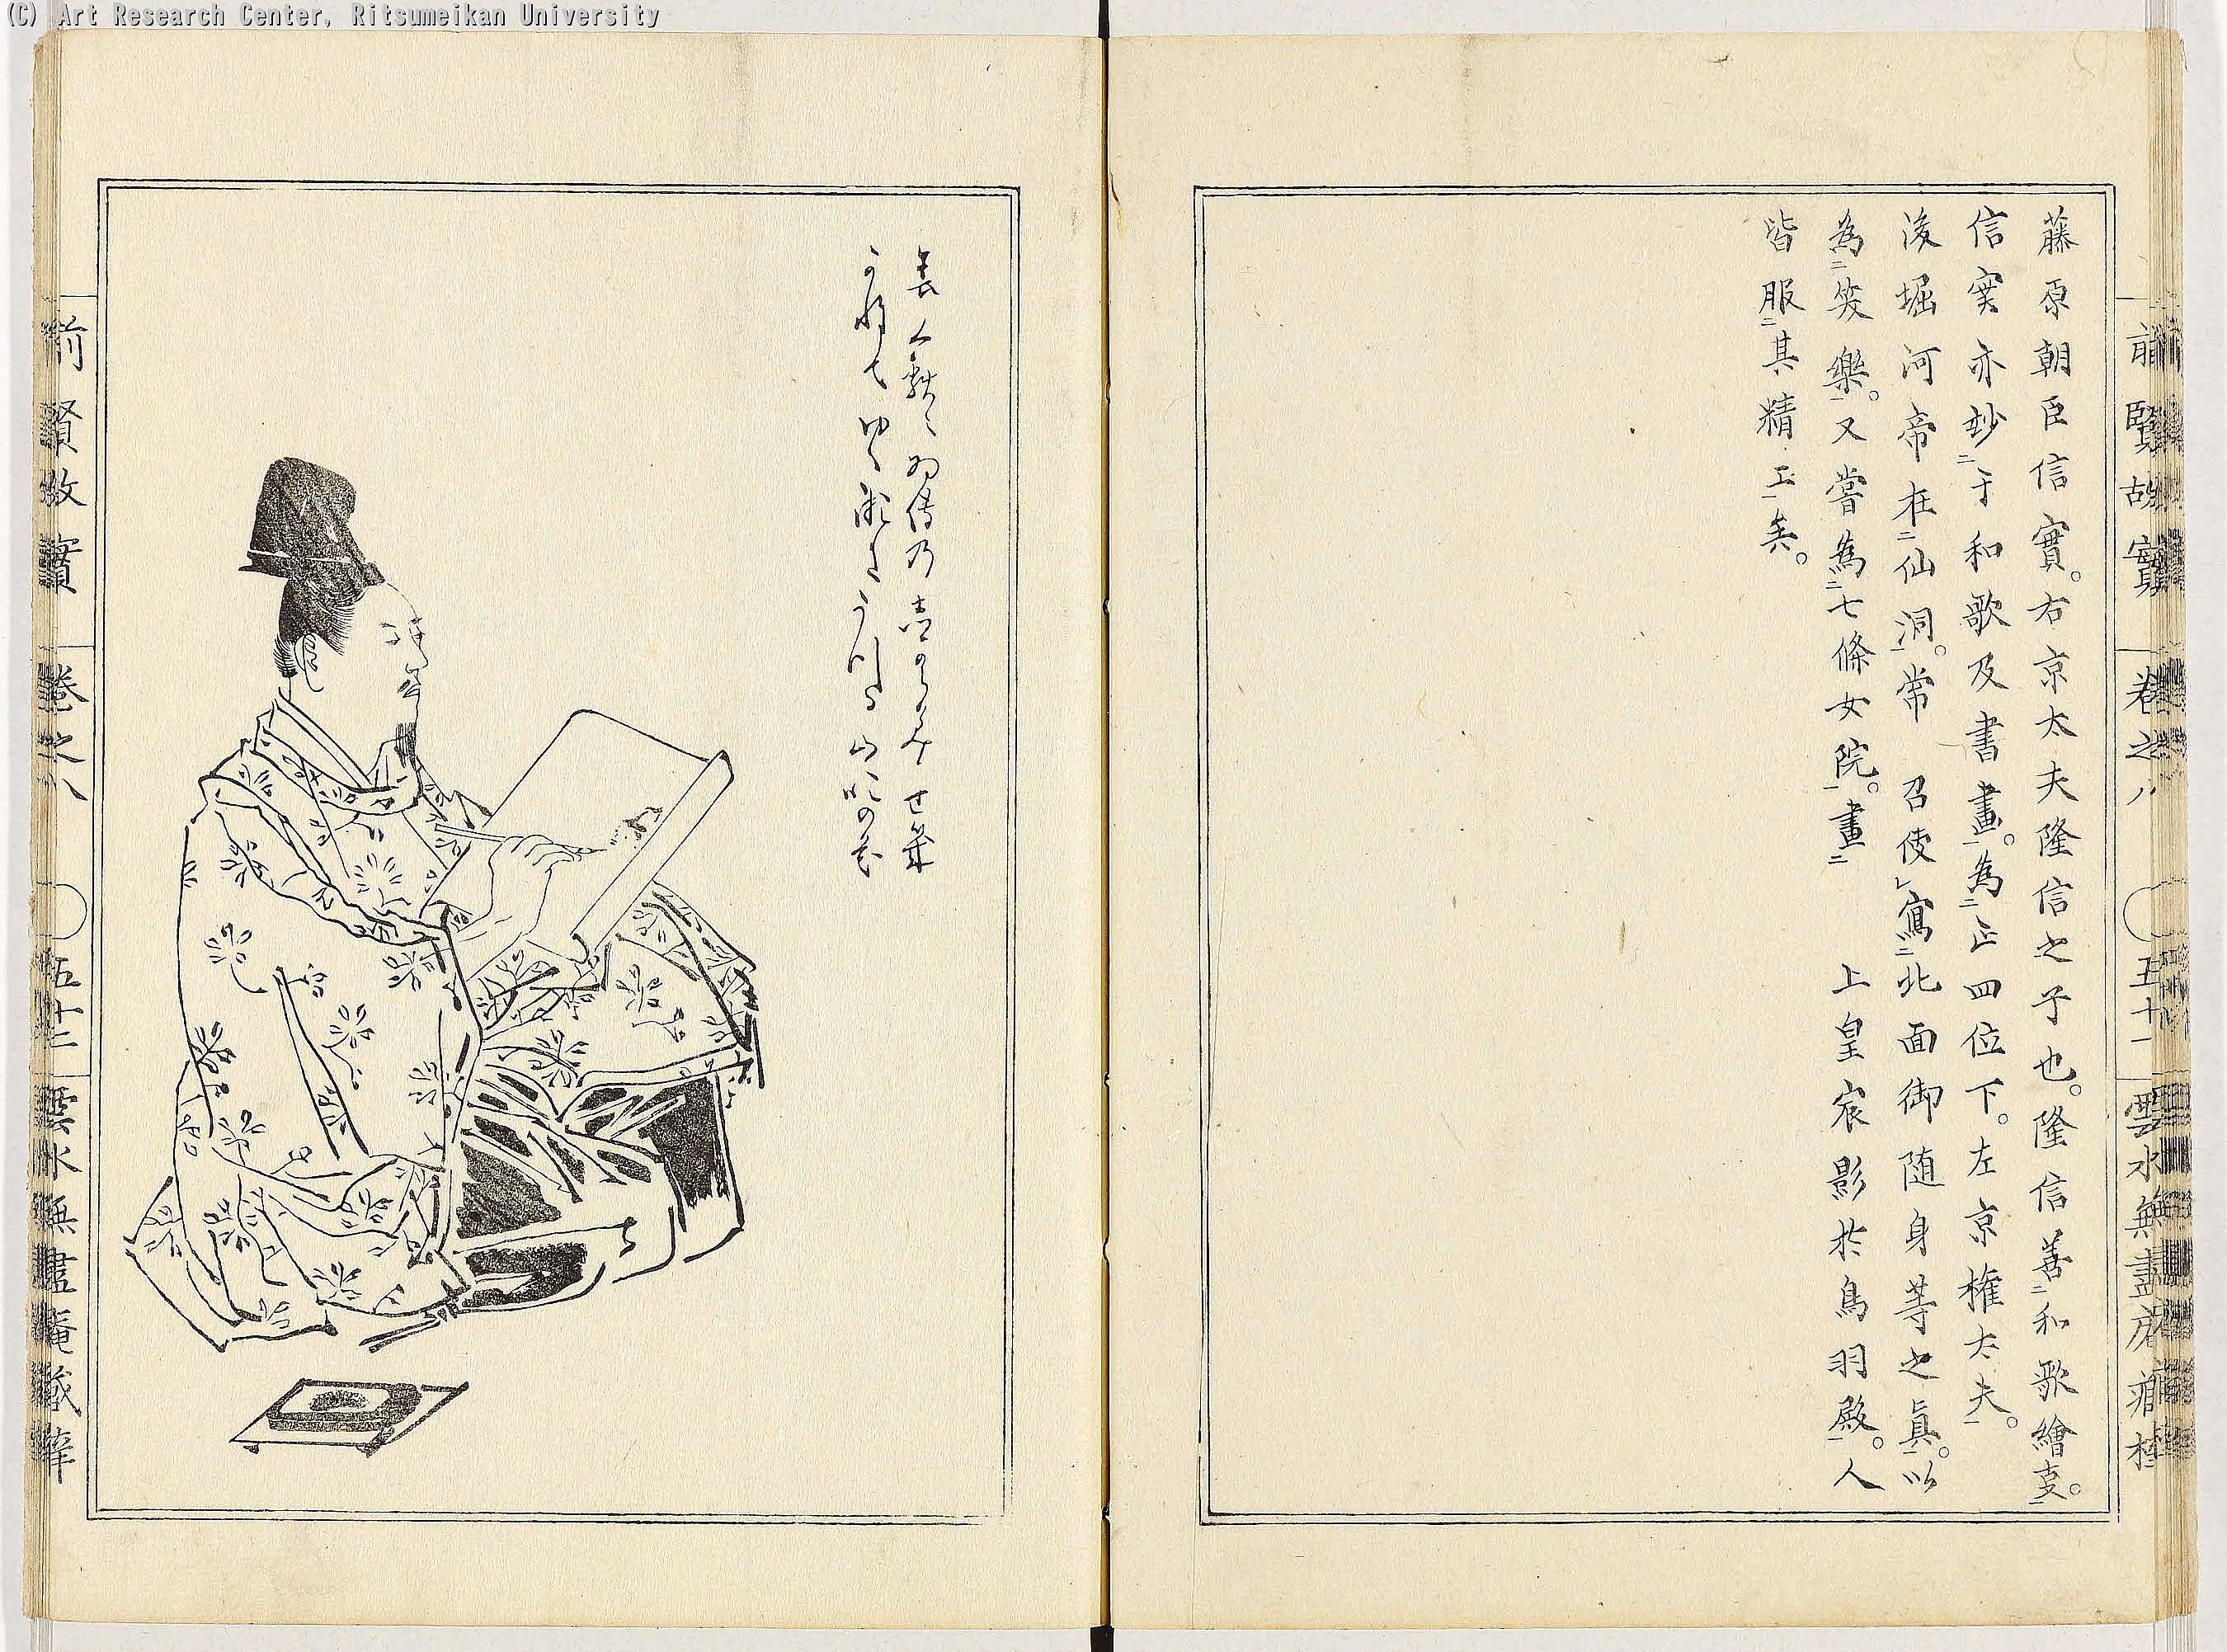 (C) Art Research Center, Ritsumeikan University
前賢故實 卷之八 五十一 雲水無盡庵
藤原朝臣信實。右京太夫隆信之子也。隆信善二和歌繪支一。
信實亦妙二于和歌及書畫一。為二正四位下。左京權太夫一。
後堀河帝在二仙洞一。常 召使レ寫二北面御随身等之眞一。以
為二笑樂一。又嘗為二七條女院一。畫二 上皇宸影於鳥羽殿一。人
皆服二其精工一矣。
前賢故實 卷之八 五十二 雲水無盡庵藏梓